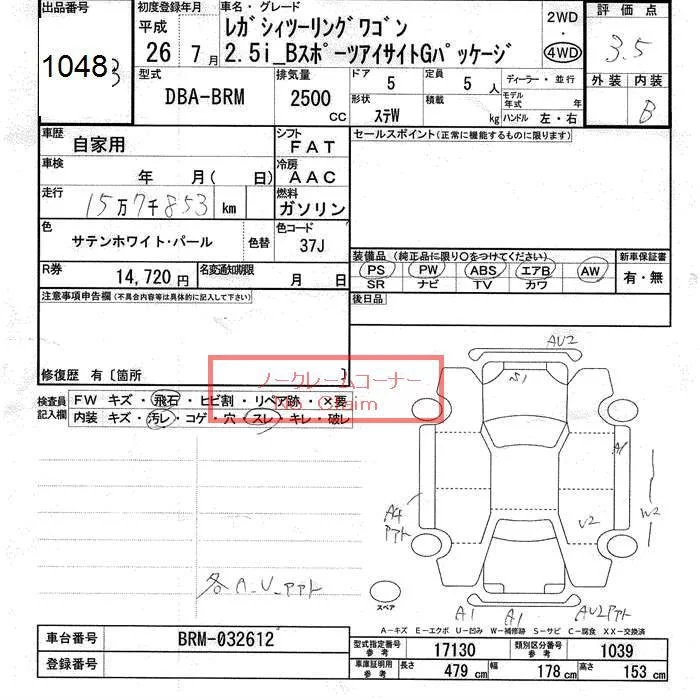 出品番号 初度登録年月 車名・グレード 2WD 評価点
1048 3 平成 26年 7月 レガシィツーリングワゴン 4WD 3.5
2.5i_BスポーツアイサイトGパッケージ
型式 DBA-BRM 排気量 2500 CC ドア 5 定員 5人 ディーラー・並行 外装 内装
形状 ステW 積載 kg モデル年式 年 ハンドル 左・右 B
車歴 自家用 シフト FAT セールスポイント(正常に機能するものに限ります)
車検 年 月( 日) 冷房 AAC
走行 15万7千853 km 燃料 ガソリン
色 サテンホワイト・パール 色替 色コード 37J
装備品(純正品に限り○をつけてください) 新車保証書
R券 14,720円 名変通知期限 月 日 PS PW ABS エアB AW 有・無
SR ナビ TV カワ
注意事項申告欄(不具合内容等は具体的に記入して下さい) 後日品
修復歴 有〔箇所 〕
ノークレームコーナー
No Claim
検査員記入欄 FW キズ・飛石・ヒビ割・リペア跡・×要
内装 キズ・汚レ・コゲ・穴・スレ・キレ・破レ
AU2
S1
A1
W2
A4
アアト
U2
各A_U_アアト
スペア
A1 A1 AU2アアト
A-キズ E-エクボ U-凹み W-補修跡 S-サビ C-腐食 XX-交換済
車台番号 BRM-032612 型式指定番号 参考 17130 類別区分番号 参考 1039
登録番号 車庫証明用 参考 長さ 479cm 幅 178cm 高さ 153cm